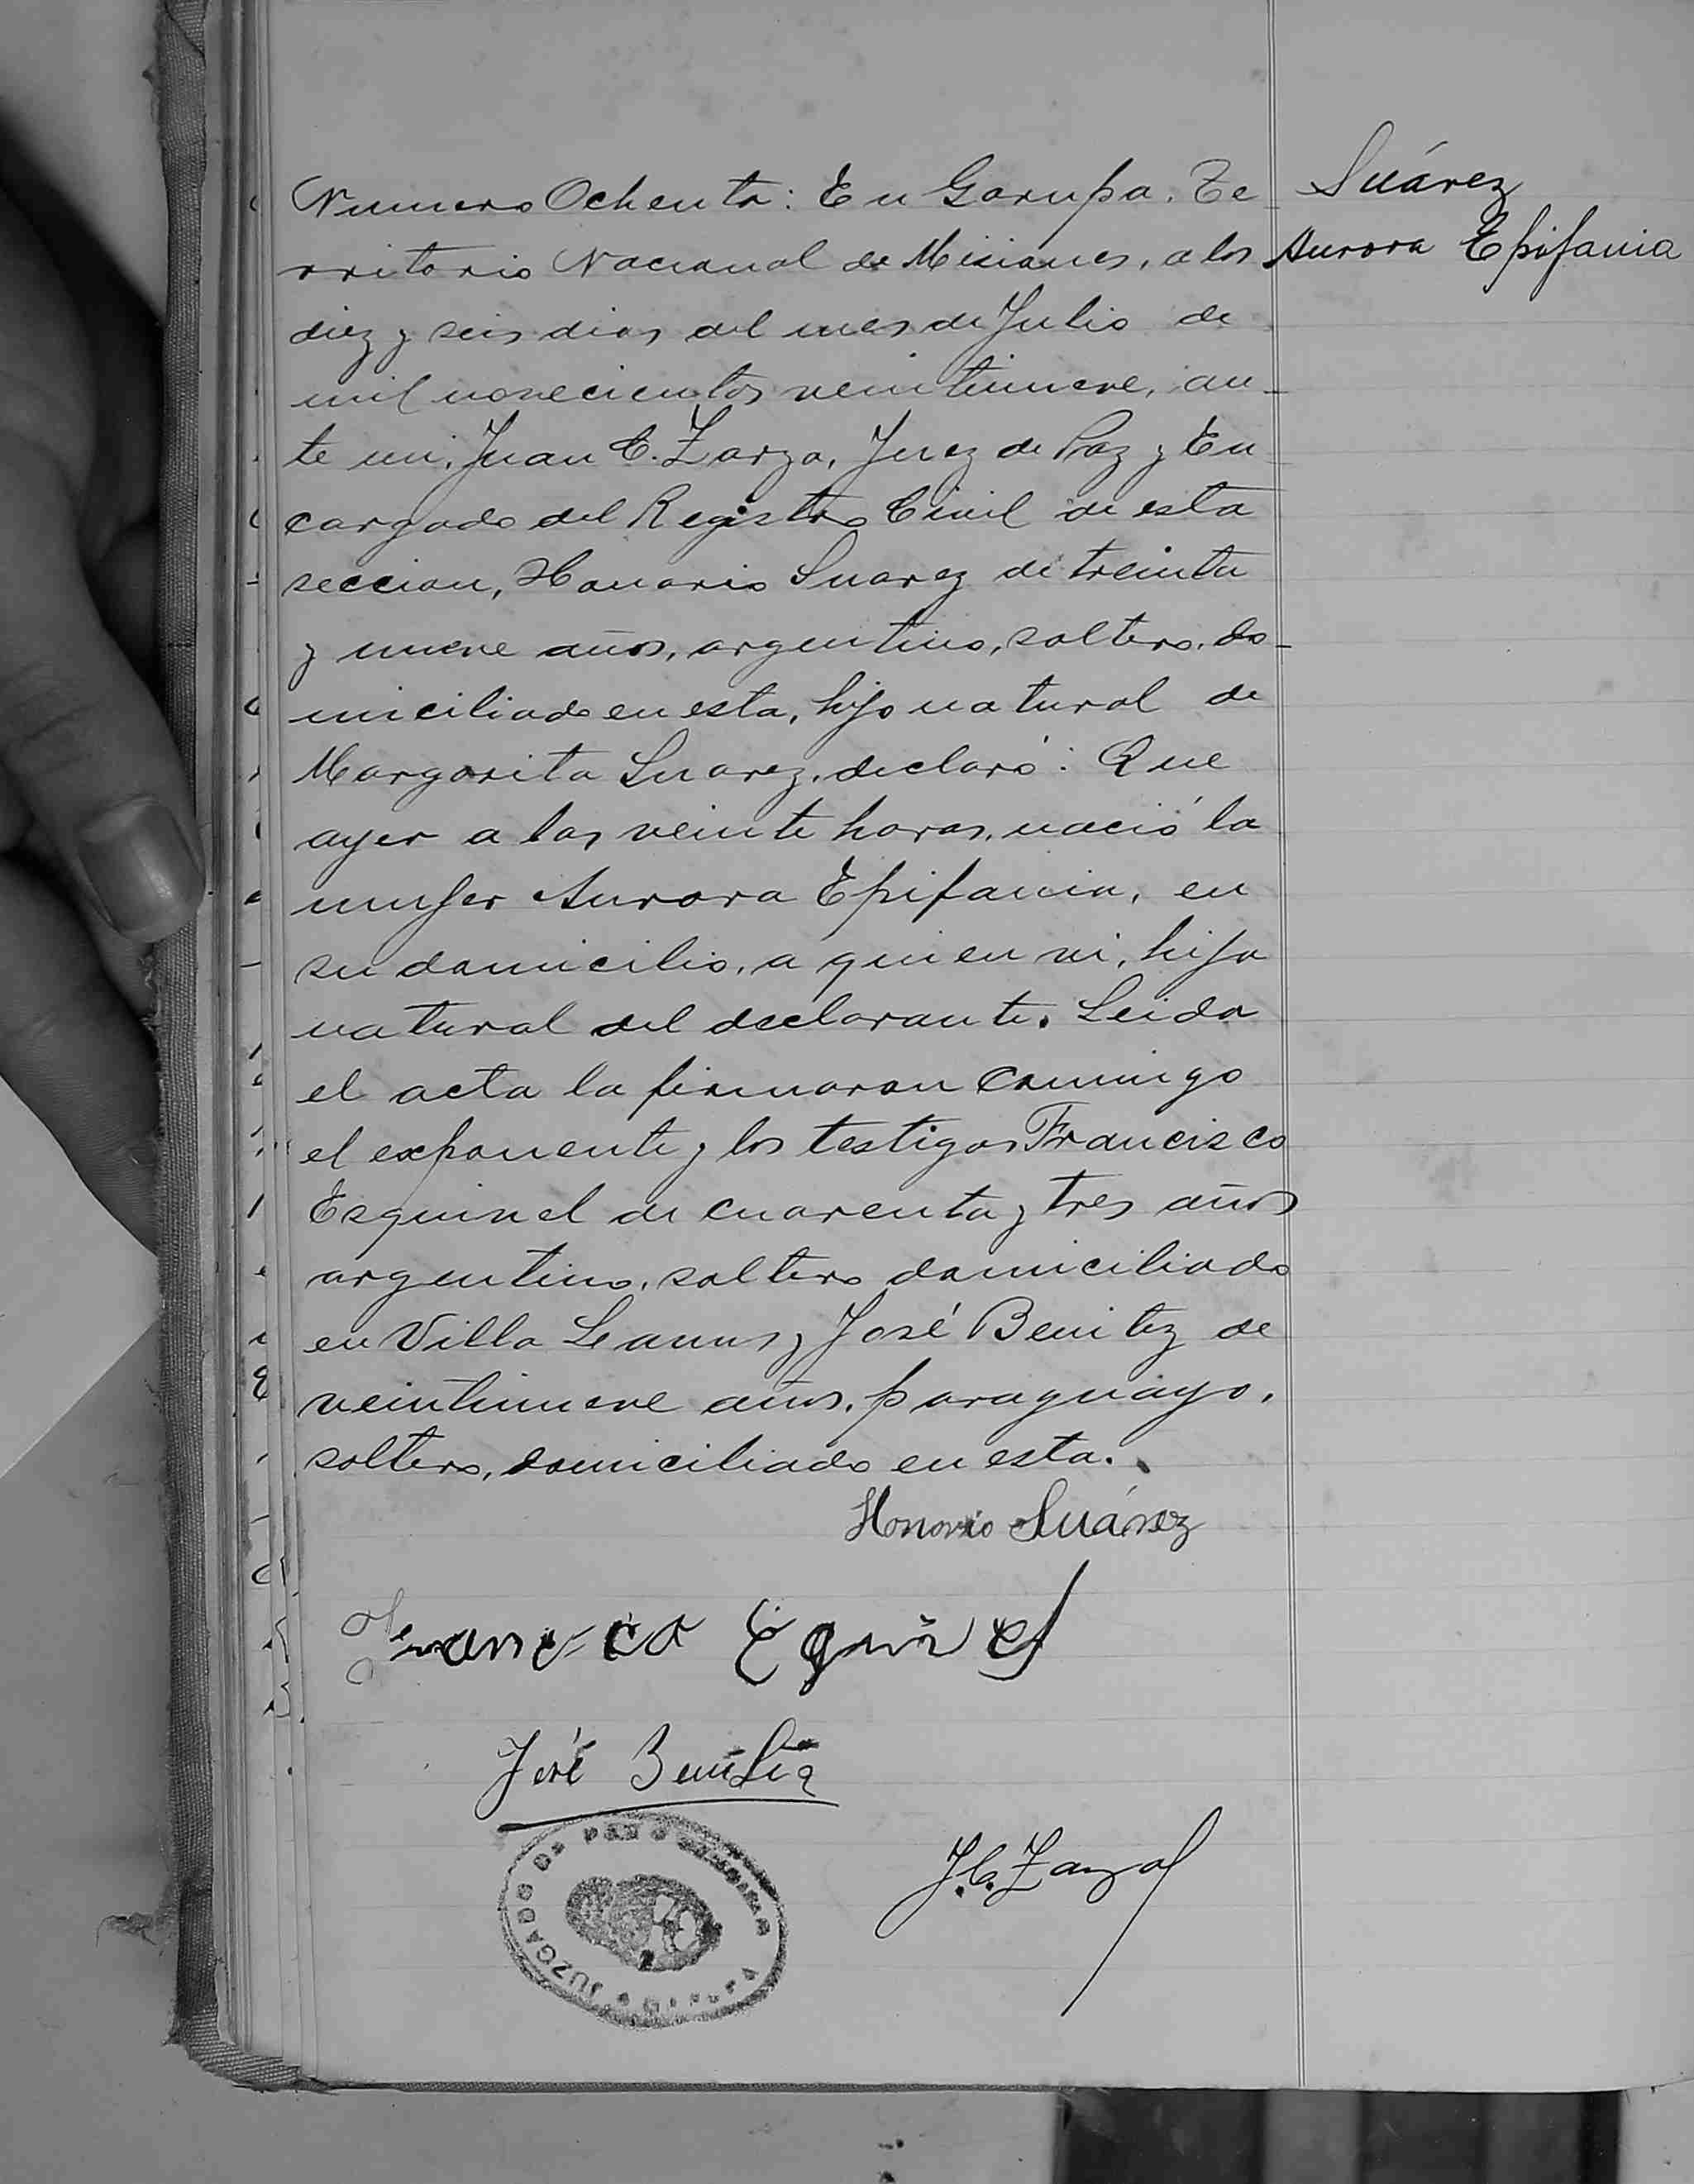 Suárez
Aurora Epifania
Numero Ochenta: En Garupa. Te
rritorio Nacional de Misiones, a los
diez y seis dias del mes de Julio de
mil novecientos veintinueve, an-
te mi, Juan C. Zarza, Juez de Paz y En
cargado del Registro Civil de esta
seccion, Honorio Suarez de treinta
y nueve años, argentino, soltero, do-
miciliado en esta, hijo natural de
Margarita Suarez, declaró: Que
ayer a las veinte horas, nació la
mujer Aurora Epifania, en
su domicilio, a quien vi, hija
natural del declarante. Leida
el acta la firmaron conmigo
el exponente y los testigos Francisco
Esquivel de cuarenta y tres años
argentino, soltero domiciliado
en Villa Lanus y José Benitez de
veintinueve años, paraguayo,
soltero, domiciliado en esta.
Honorio Suárez
José Benitez
J. C. Zarza
JUZGADO DE PAZ